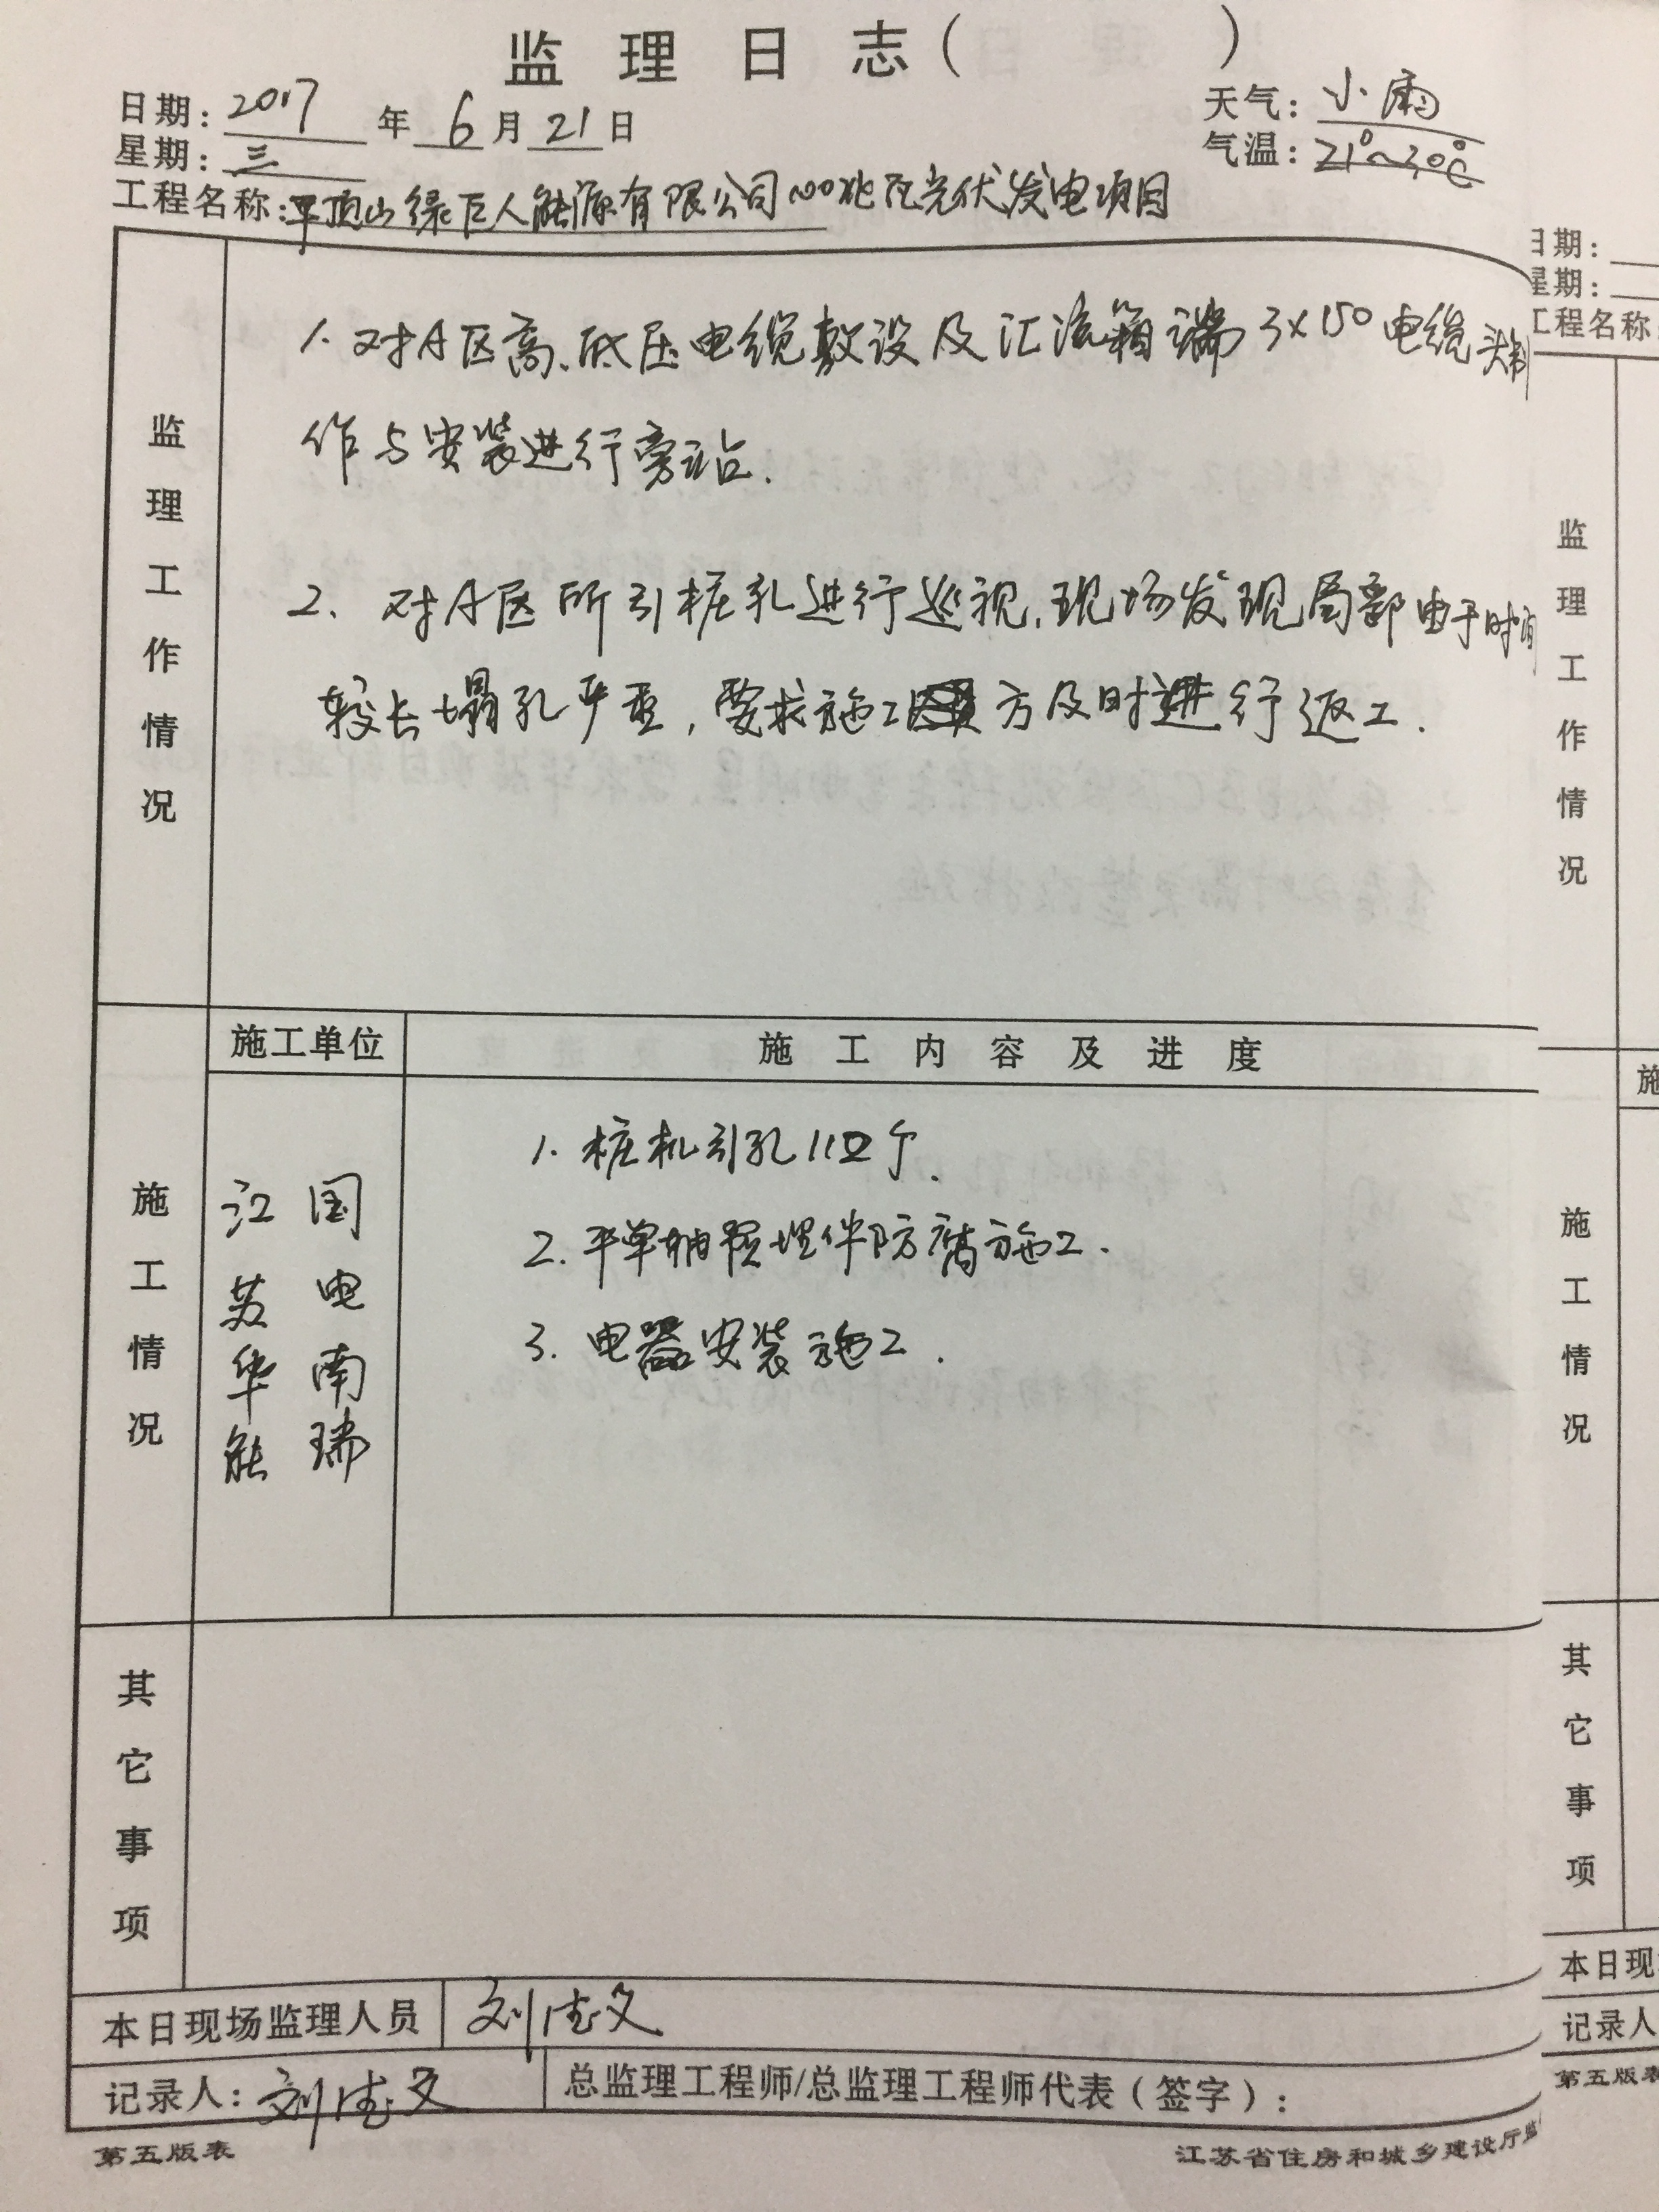 监理日志（ ）
日期：2017年6月21日 天气：小雨
星期：三 气温：21°~30℃
工程名称：平顶山绿巨人能源有限公司100兆瓦光伏发电项目
监理工作情况
1. 对A区高、低压电缆敷设及汇流箱端3×150电缆头制
作与安装进行旁站.
2. 对A区所引桩孔进行巡视，现场发现局部由于时间
较长塌孔严重，要求施工方及时进行返工.
施工情况
施工单位 施工内容及进度
江苏华能
国电南瑞
1. 桩机引孔112个.
2. 平单轴预埋件防腐施工.
3. 电器安装施工.
其它事项
本日现场监理人员 刘德文
记录人：刘德文 总监理工程师/总监理工程师代表（签字）：
第五版表 江苏省住房和城乡建设厅监
日期：
星期：
工程名称
监理工作情况
施
施工情况
其它事项
本日现
记录人
第五版表